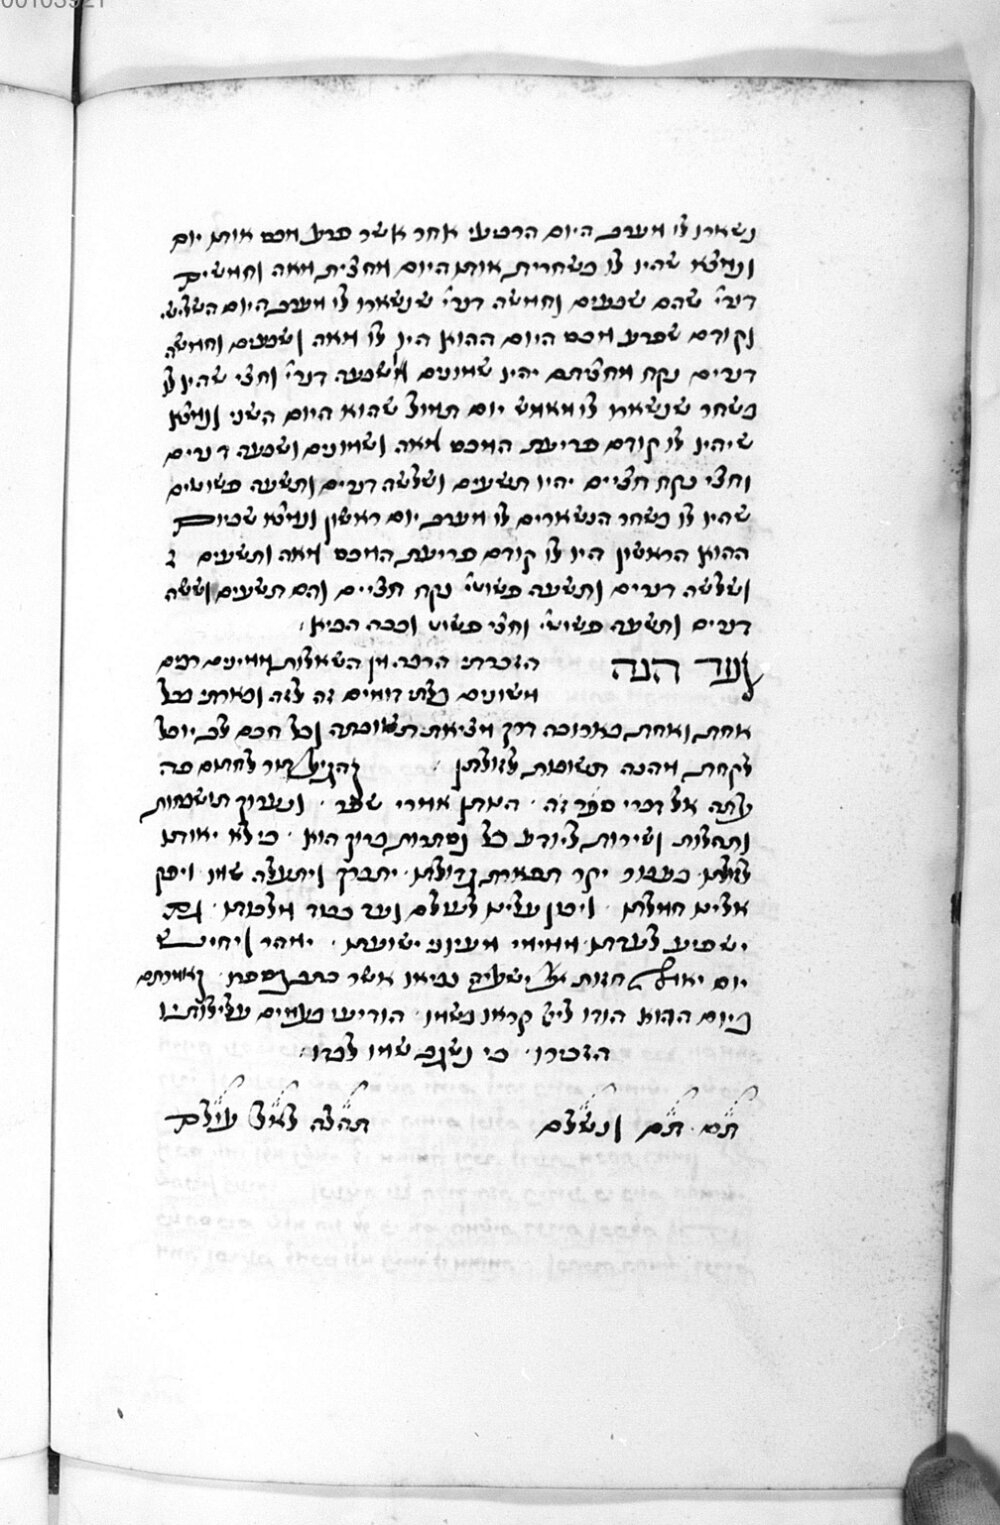 00103921
נשארו לו מערב היום הרביעי אחר אשר פרע מכס אותו יום
ונמצא שהיו לו בשחרית אותו היום מחצית מאה וחמשים
דנרי׳ שהם שבעים וחמשה דנרי׳ שנשארו לו מערב היום השליש׳
וקודם שפרע מכס היום ההוא היו לו מאה ושבעים וחמשה
דנרים נקח מחציתם יהיו שמונים ושבעה דנרי׳ וחצי שהיו לו
בשחר שנשארו לו מאמש יום תמול שהוא היום השני ונמצא
שיהיו לו קודם פריעת המכס מאה ושמונים ושבעה דנרים
וחצי נקח חציים יהיו תשעים ושלשה דנרים ותשעה פשוטים
שהיו לו בשחר הנשארים לו מערב יום ראשון ונמצא שביום
ההוא הראשון היו לו קודם פריעת המכס מאה ותשעים
ושלשה דנרים ותשעה פשוטי׳ נקח חציים והם תשעים וששה
דנרים ותשעה פשוטי׳ וחצי פשוט וככה הביא׃
ועד הנה הדברתי הרבה מן השאלות ממינים רבים
משונים בלתי דומים זה לזה ובארתי בכל
אחת ואחת בארוכה דרך מציאת תשובתה וכל חכם לב יוכל
לקחת מהנה תשובות לזולתן והגיע תור לחתום פה
עתה אל דברי ספר זה ׳ הנותן אמרי שפר ׳ ונערוך תושבחות
ותהלות ושירות ליודע כל נסתרות ברוך הוא ׳ כי לא יאותו
לזולתו כמבוד יקר תפארת גדולתו ׳ יתברך ויתעלה שמו ויפק
אלינו חמלתו ׳ ויטן עלינו לעולם ועד כבוד מלכותו ׳
ישפיע לעדתו מימי מעיוני ישועתו ׳ ימהר ויחיש
יום יאות חזות ישעיה נביאו אשר כתב בספרו ׳ ואמרתם
ביום ההוא הודו לי״י קראו בשמו ׳ הודיעו בעמים עלילותיו
הזכירו ׳ כי נשגב שמו לבדו׃
תם ׳ תם ונשלם תהלה לאל עולם